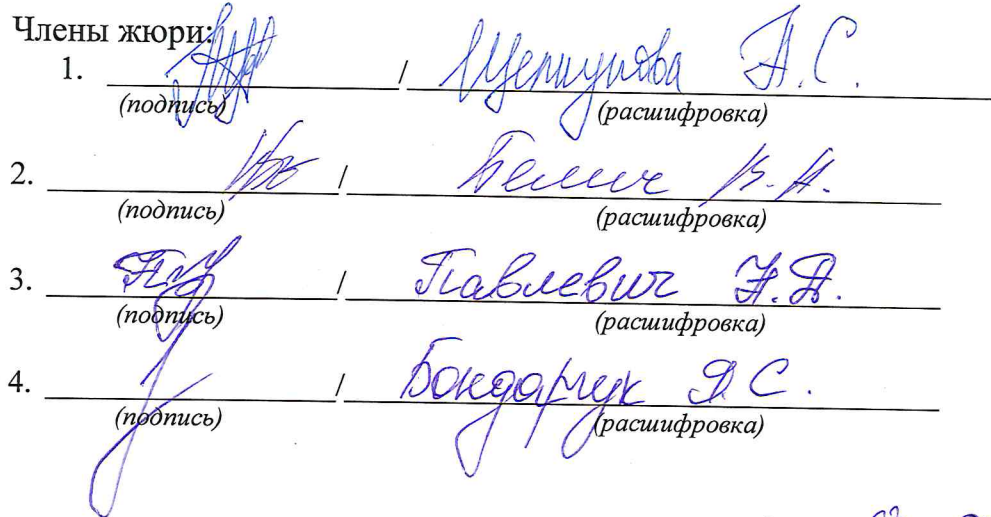 Члены жюри:
1. / А.С.
(подпись) (расшифровка)
2. / Белич В.А.
(подпись) (расшифровка)
3. / Павлевич Н.А.
(подпись) (расшифровка)
4. / Бондарчук Я С.
(подпись) (расшифровка)